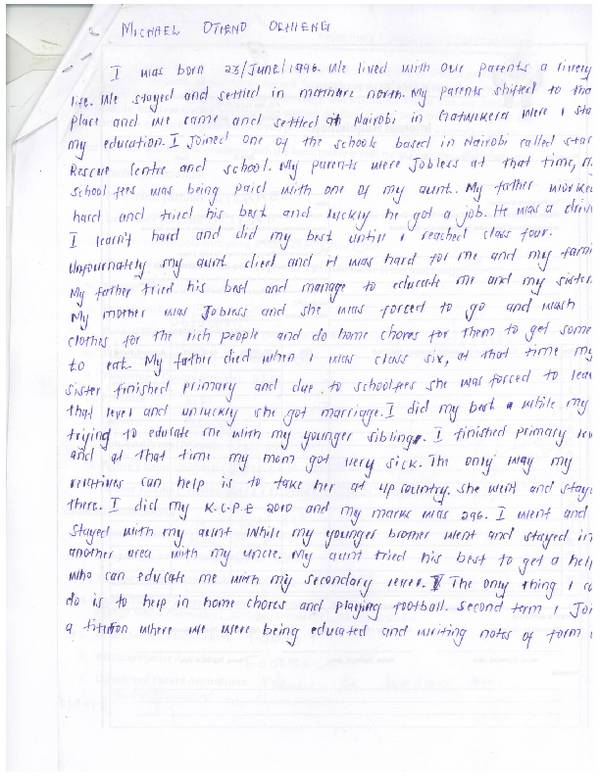 MICHAEL OTIENO OCHIENG
I was born 23/June/1996. We lived with our parents a lovely
life. We stayed and settled in mathare north. My parents shifted to tha
place and we came and settled at Nairobi in Gatwikera were I sta
my education. I Joined one of the schools based in Nairobi called star
Rescue Centre and school. My parents were Jobless at that time, m
school fees was being paid with one of my aunt. My father worke
hard and tried his best and luckly he got a job. He was a driv
I learn't hard and did my best untill I reached class four.
Unfournately my aunt died and it was hard for me and my fami
My father tried his best and manage to educate me and my sister
My mother was Jobless and she was forced to go and wash
clothes for the rich people and do home chores for them to get some
to eat. My father died when I was class six, at that time my
sister finished primary and due to schoolfees she was forced to lea
that level and unluckly she got marriage. I did my best a while my
triying to educate me with my younger siblings. I finished primary lev
and at that time my mom got very sick. The only way my
relatives can help is to take her at up country. She went and staye
there. I did my K.C.P.E 2010 and my marks was 296. I went and
stayed with my aunt while my younger brother went and stayed in
another area with my uncle. My aunt tried his best to get a help
who can educate me with my secondary level. The only thing I co
do is to help in home chores and playing football. Second term I Joi
a tution where we were being educated and writing notes of form